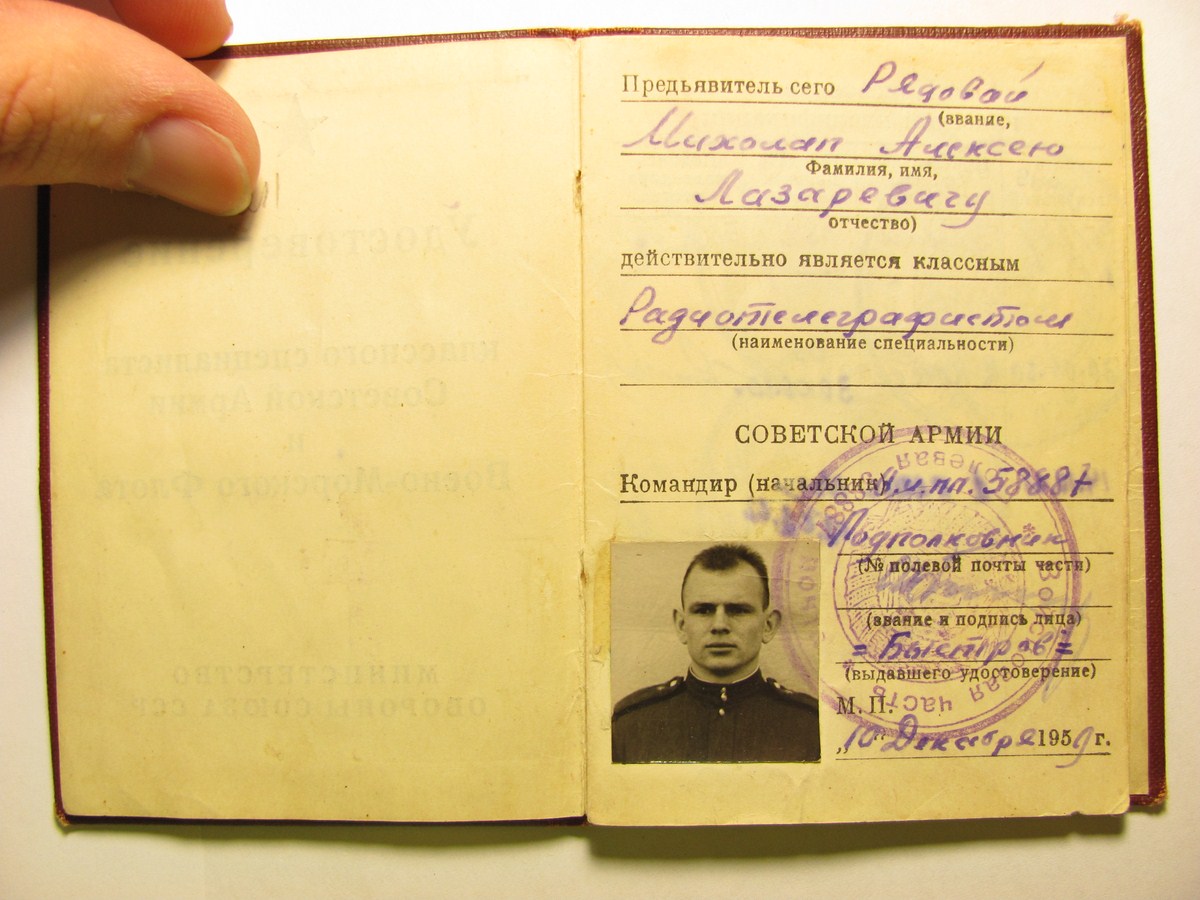 Удостоверение
классного специалиста
Советской Армии
и
Военно-Морского Флота
МИНИСТЕРСТВО
ОБОРОНЫ СОЮЗА ССР
Предьявитель сего Рядовой
(звание,
Михолап Алексею
Фамилия, имя,
Лазаревичу
отчество)
действительно является классным
Радиотелеграфистом
(наименование специальности)
СОВЕТСКОЙ АРМИИ
Командир (начальник) в.ч.пп. 58887
Подполковник
(№ полевой почты части)
(звание и подпись лица)
=Быстров=
(выдавшего удостоверение)
М. П.
„10" Декабря 1959 г.